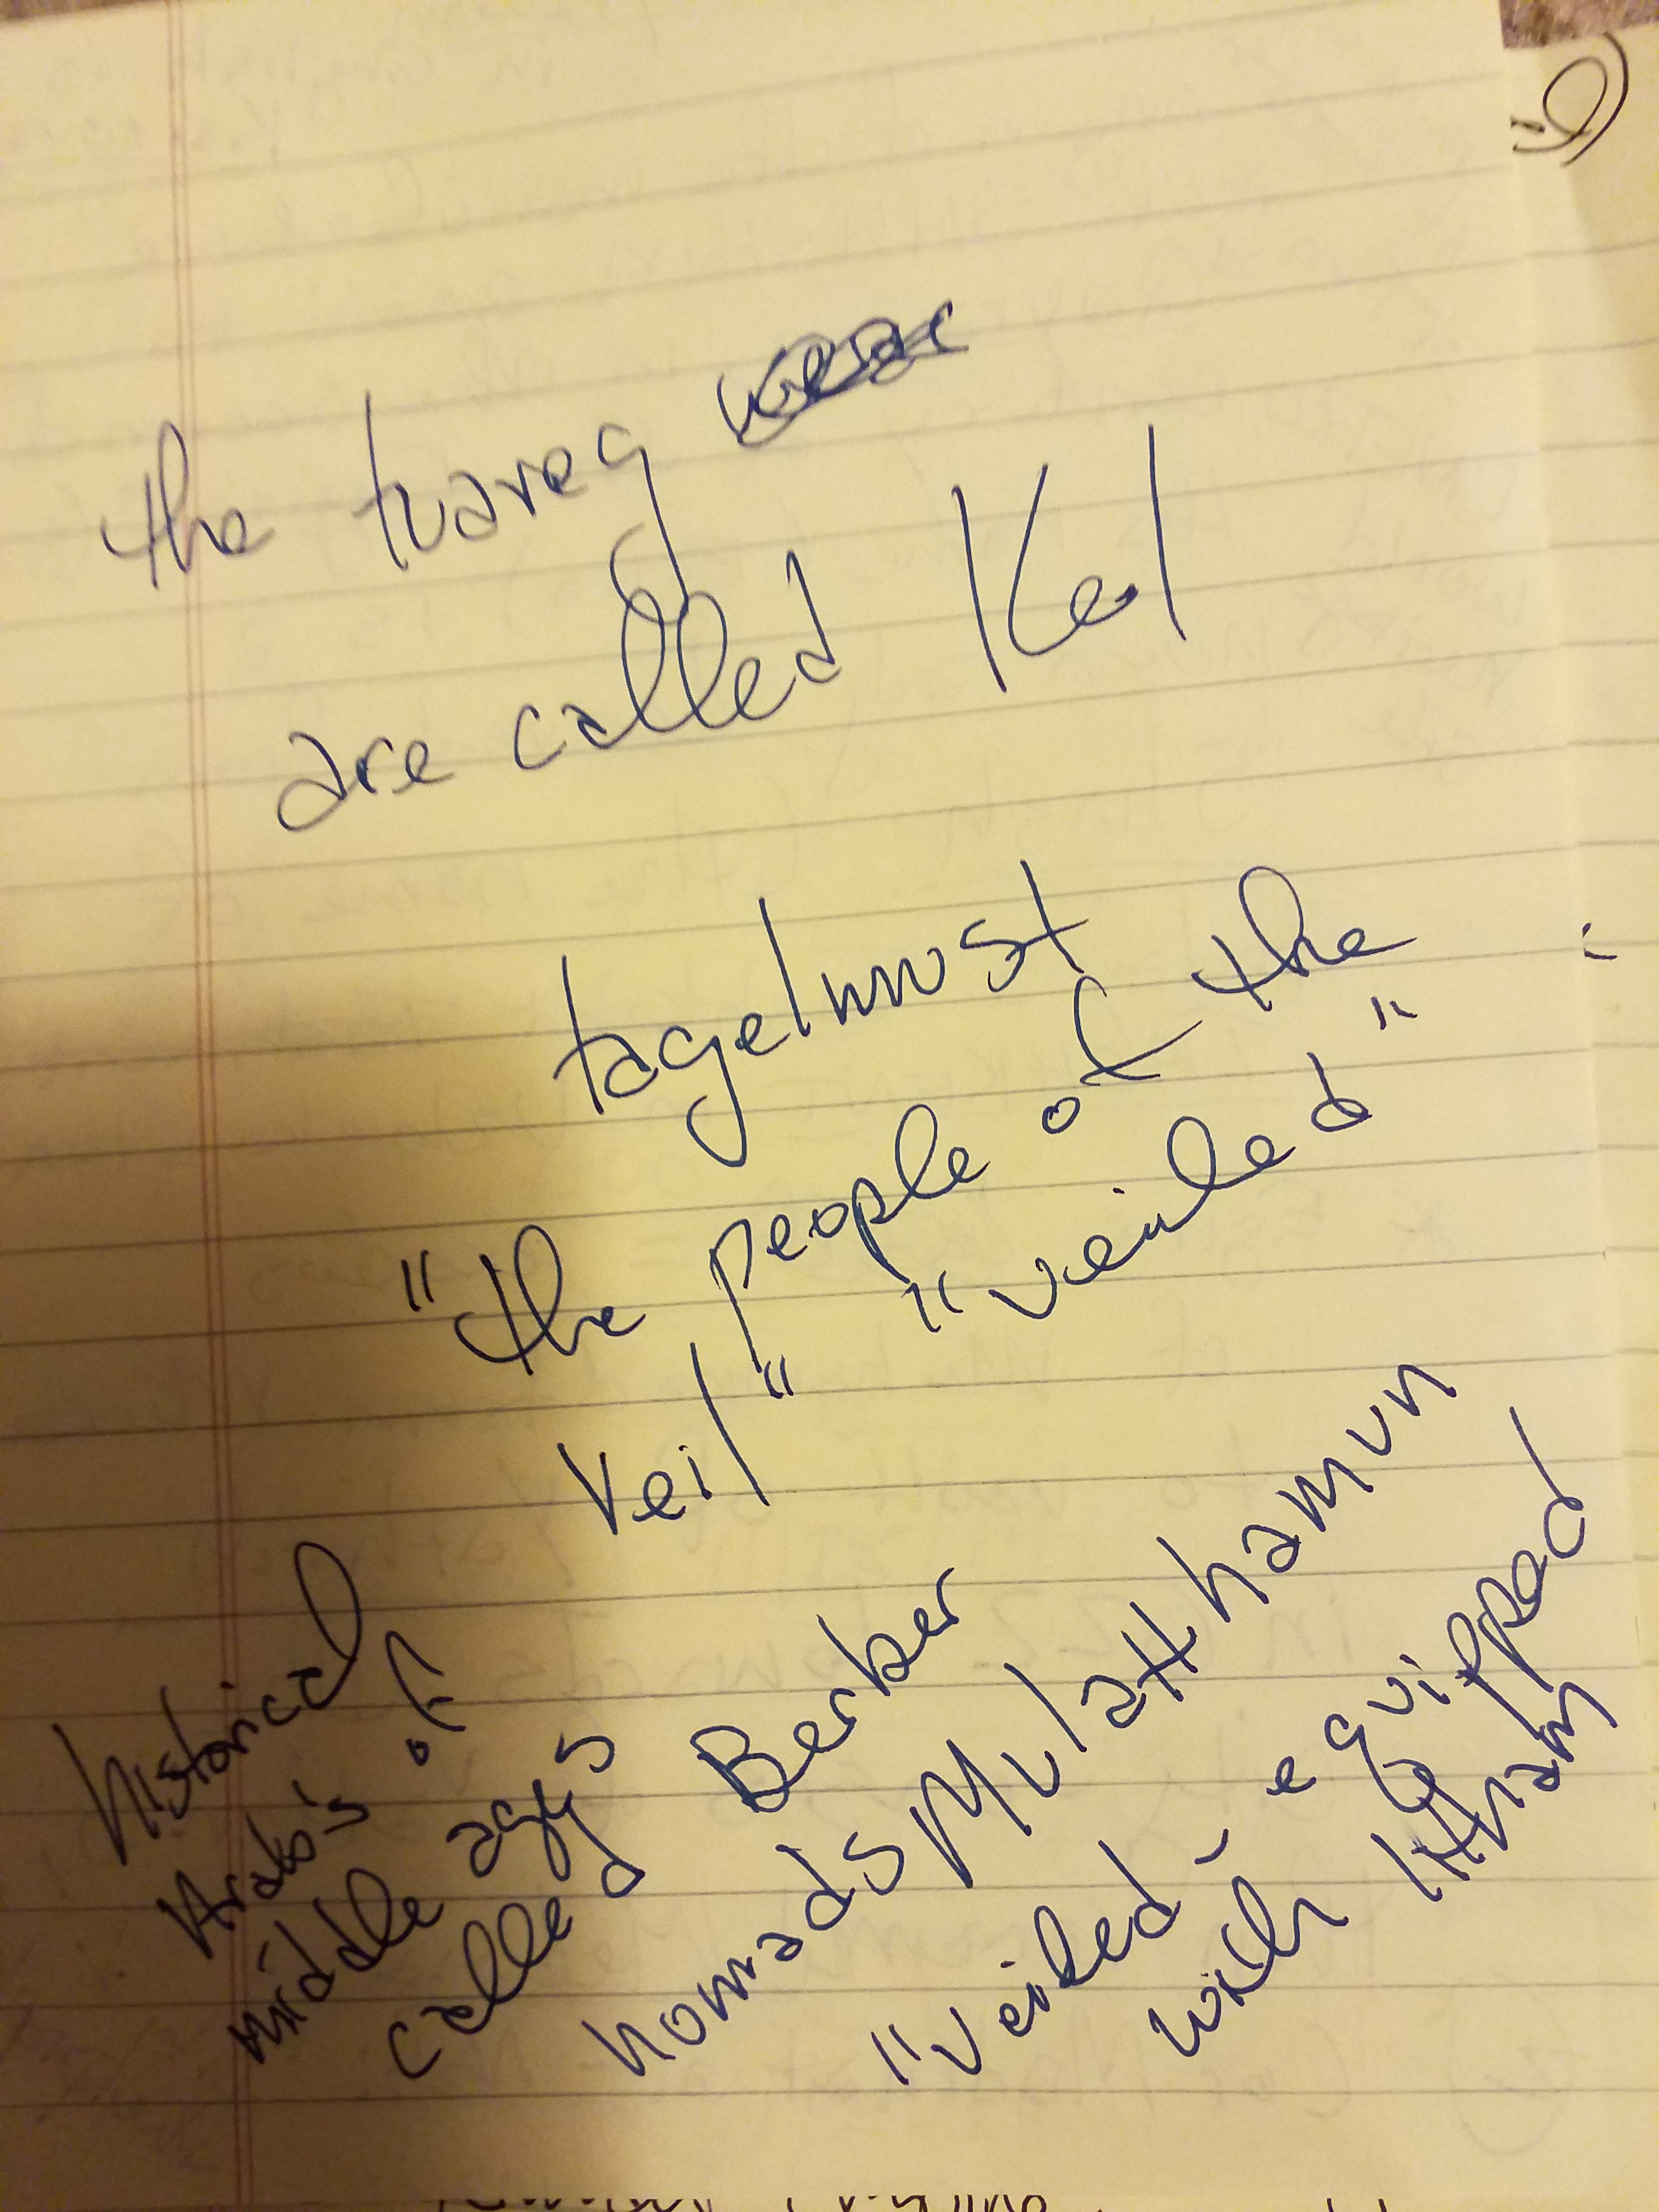 the tuareg
are called Kel
tagelmust
"the people of the
veil" "veiled"
historical
Arab's of
middle ages
called Berber
nomads Mulatthamun
"veiled - equipped
with litham